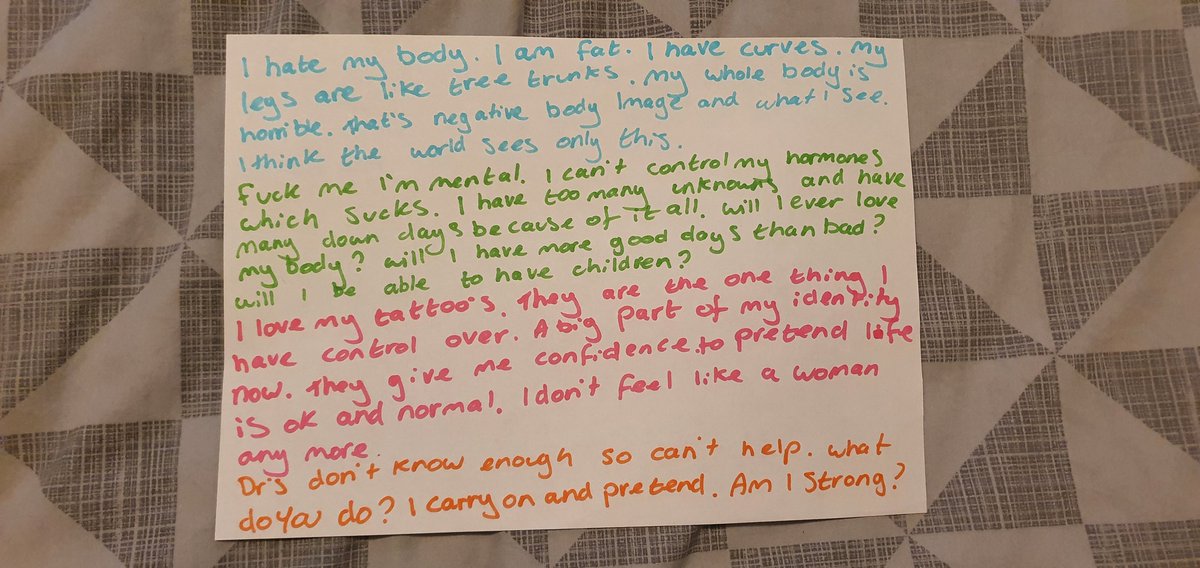 I hate my body. I am fat. I have curves. My
legs are like tree trunks. My whole body is
horrible. That's negative body Image and what I see.
I think the world sees only this.
Fuck me I'm mental. I can't control my hormones
which sucks. I have too many unknowns and have
many down days because of it all. will I ever love
my body? will I have more good days than bad?
will I be able to have children?
I love my tattoo's. They are the one thing I
have control over. A big part of my identity
now. They give me confidence.to pretend life
is ok and normal. I don't feel like a woman
any more.
Dr's don't know enough so can't help. what
do you do? I carry on and pretend. Am I Strong?